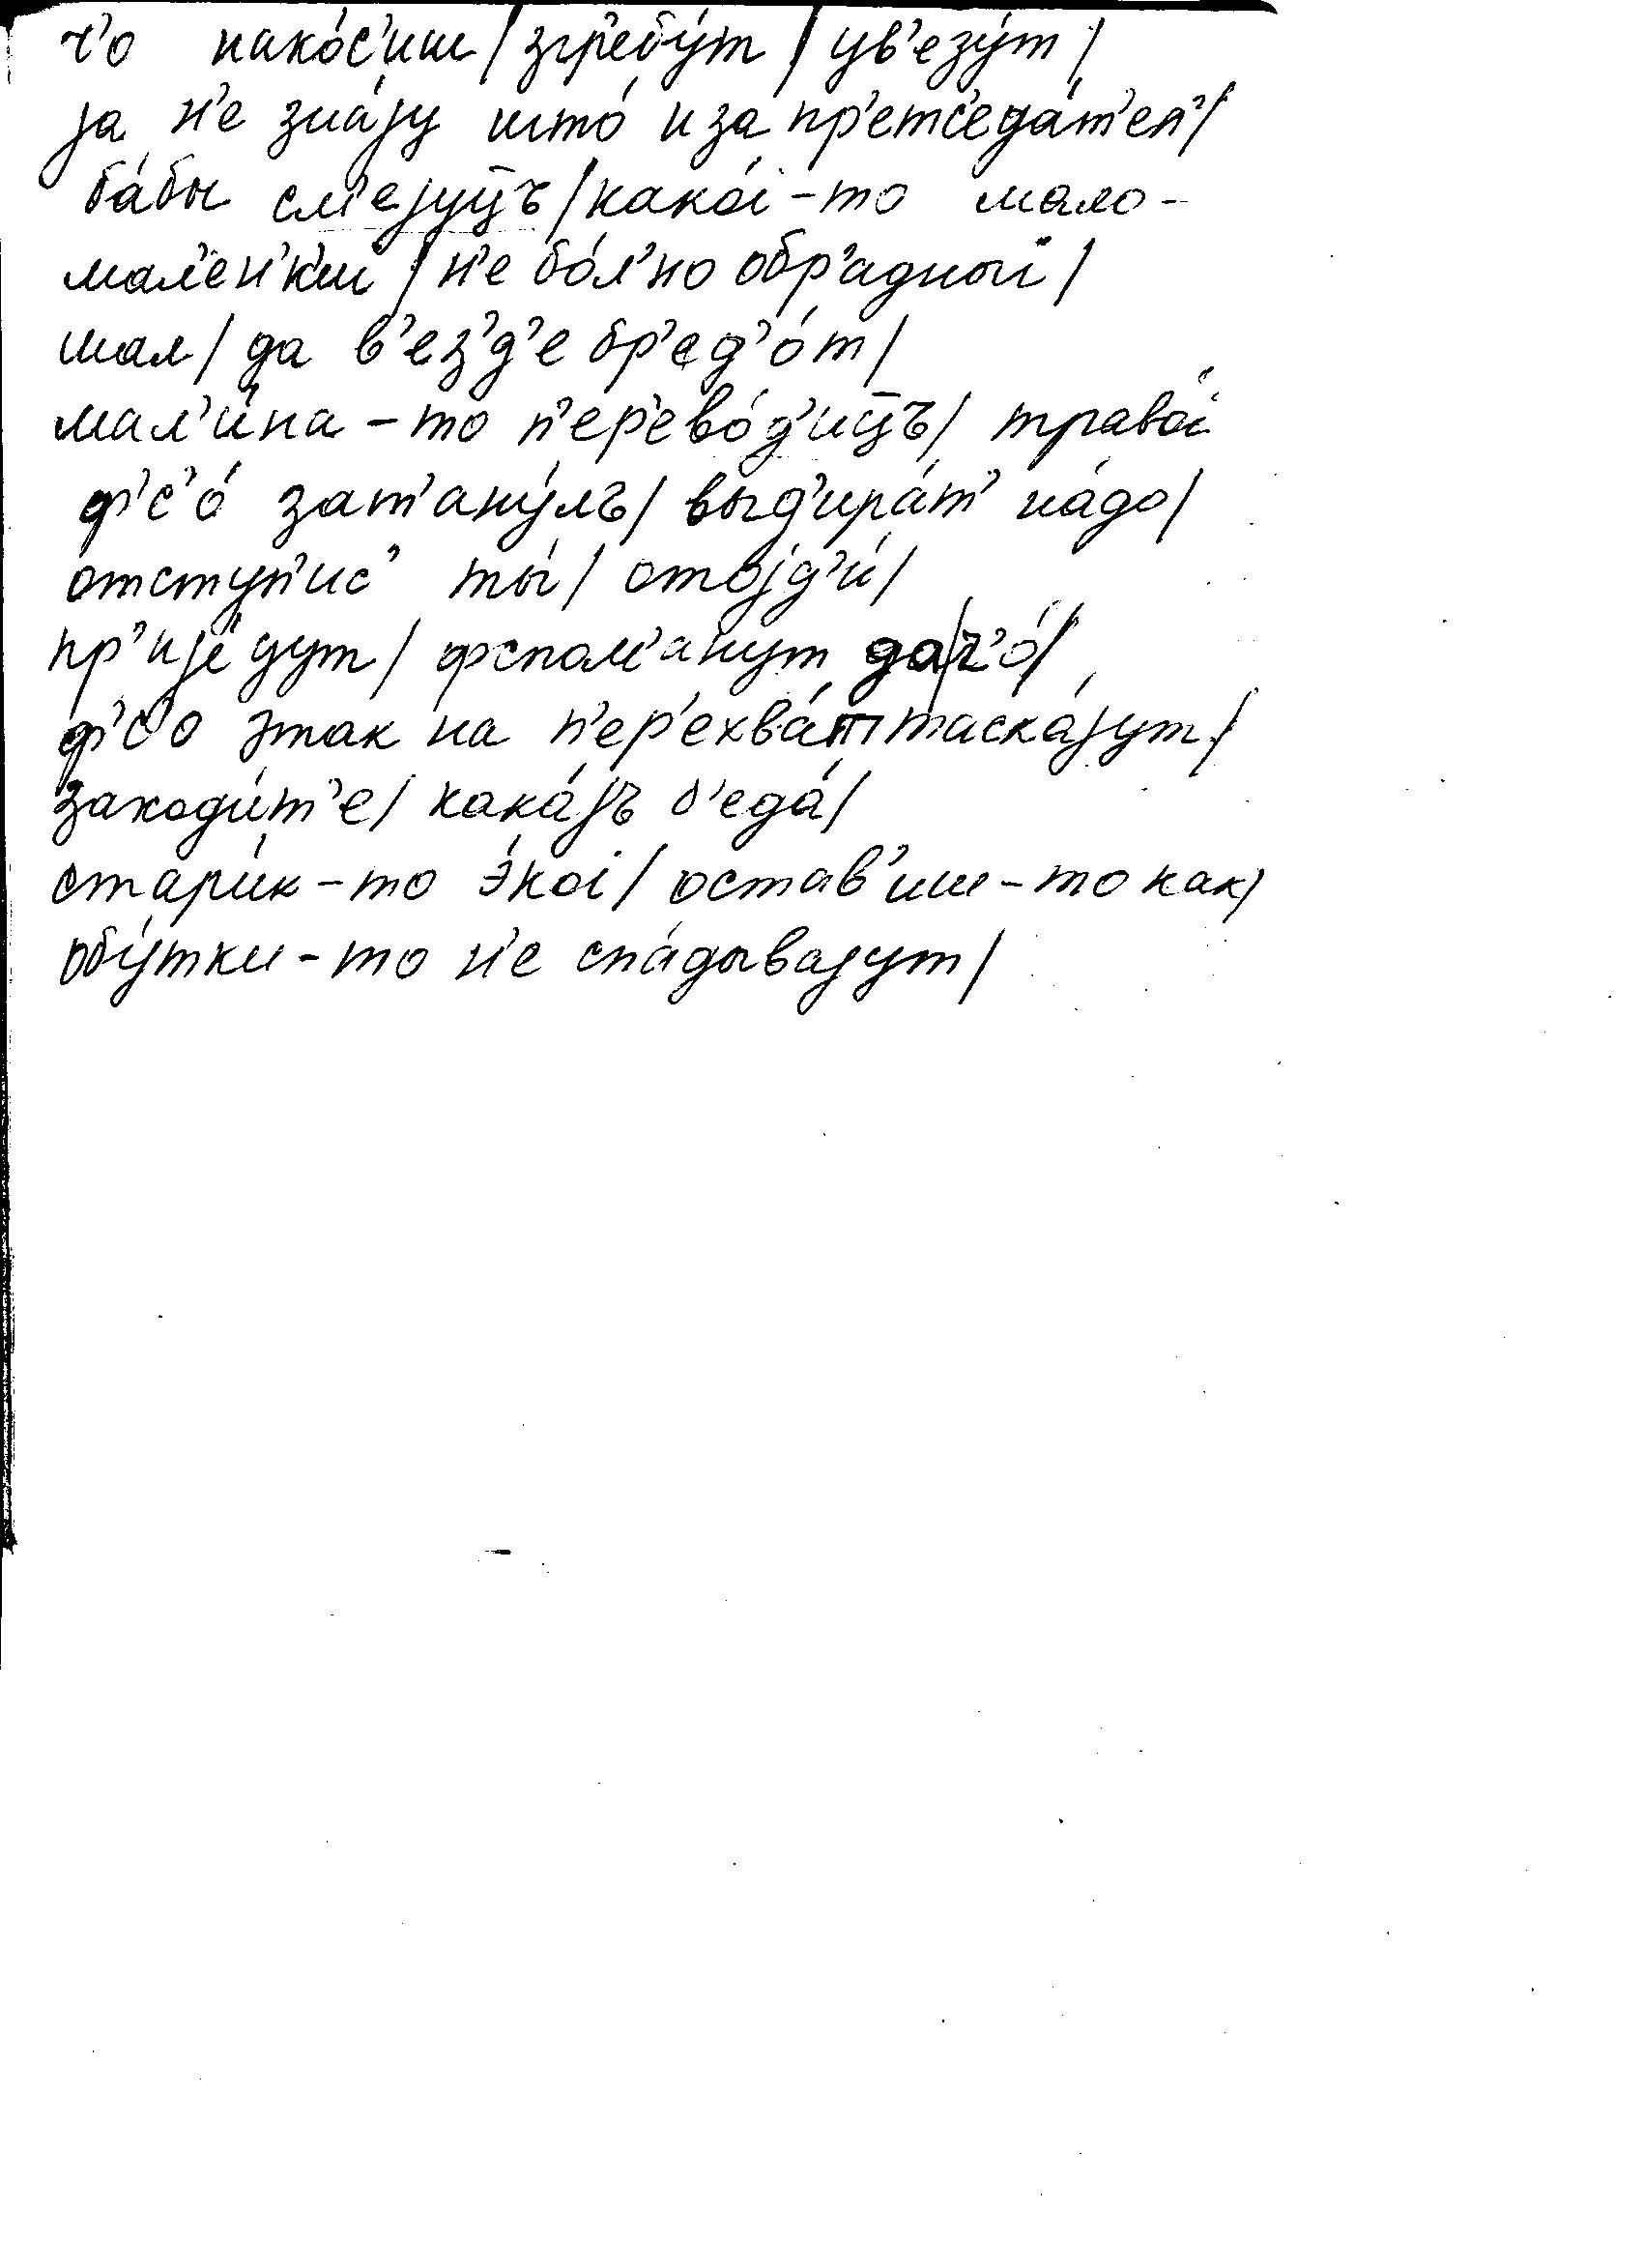 ч'о нако́с'иш / згр'ебу́т / ув'езу́т /
jа н'е зна́jу што́ и за пр'етс'еда́т'ел' /
ба́бы см'еjуц̄ъ / како́i-то мало-
мал'ен'к'иi / н'е бо́л'но обр'адныi /
мал / да в'ез'д'е бр'ед'о́т /
мал'и́на-то п'ер'ево́д'иц̄ъ / траво́i
ф'с'о́ зат'ану́лъ / выд'ира́т' на́до /
отступ'ис' ты́ / отоjд'и́ /
пр'иjе́дут / фспом'а́нут да / ч'о́ /
ф'с'о этак на п'ер'ехва́т таска́jут /
заход'и́т'е / кака́jъ б'еда́ /
стари́к-то э́коi / остав'иш-то как /
обу́тки-то н'е спа́дываjут /